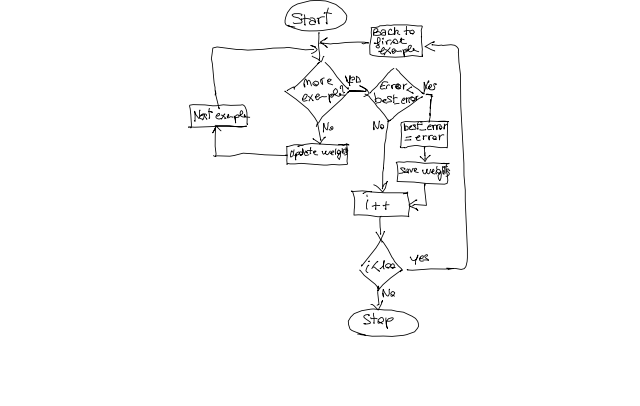 Start
Back to
first
example
more
example?
Yes
Error<
best error
Yes
Next example
No
No
best_error
= error
Update weights
save weights
i++
i<100
yes
No
Stop